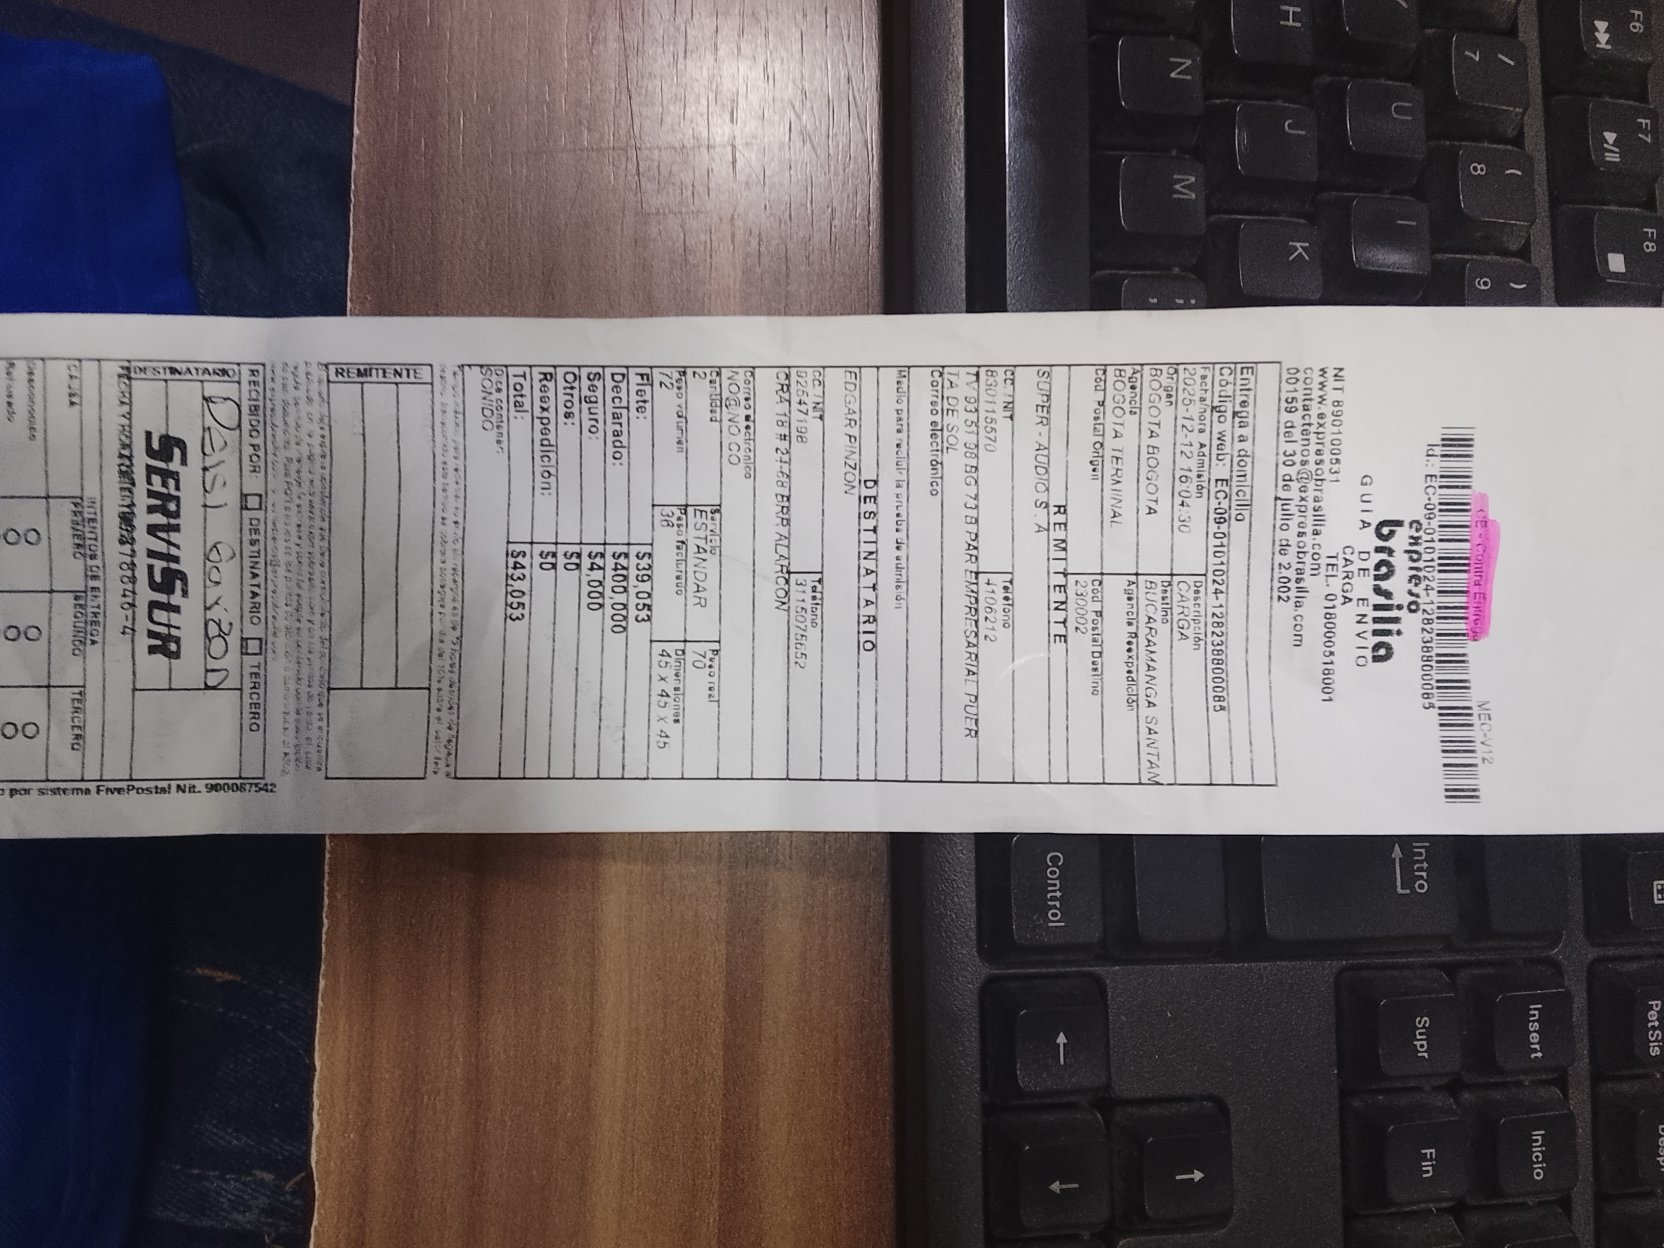 CE - Contra-Entrega
MEC-V12
Id.: EC-09-0101024-128238800085
expreso
brasilia
CARGA
GUIA DE ENVIO
NIT 890100531 TEL. 018000518001
www.expresobrasilia.com
contactenos@expresobrasilia.com
00159 del 30 de julio de 2.002
Entrega a domicilio
Código web: EC-09-0101024-128238800085
Fecha/hora Admisión Descripción
2025-12-12 16:04:30 CARGA
Origen Destino
BOGOTA BOGOTA BUCARAMANGA SANTAN
Agencia Agencia Reexpedición
BOGOTA TERMINAL
Cód Postal Origen Cód Postal Destino
230002
REMITENTE
SUPER - AUDIO S. A
CC. / NIT Teléfono
830115570 4106212
TV 93 51 98 BG 73 B PAR EMPRESARIAL PUER
TA DE SOL
Correo electrónico
Medio para recibir la prueba de admisión
DESTINATARIO
EDGAR PINZON
CC. / NIT Teléfono
92547198 3115075652
CRA 18 # 21-68 BRR ALARCON
Correo electrónico
NO@NO.CO
Cantidad Servicio Peso real
2 ESTANDAR 70
Peso volumen Peso facturado Dimensiones
72 36 45 X 45 X 45
Flete: $39,053
Declarado: $400,000
Seguro: $4,000
Otros: $0
Reexpedición: $0
Total: $43,053
Dice contener:
SONIDO
REMITENTE
RECIBIDO POR: DESTINATARIO TERCERO
DESTINATARIO
SERVISUR
INTENTOS DE ENTREGA
CAUSA PRIMERO SEGUNDO TERCERO
Desconocido
Rehusado
por sistema FivePostal Nit. 900087542
F6
F7
F8
/
7
(
8
)
9
H
Y
U
I
N
J
M
K
;
,
Intro
Control
PetSis
Insert
Inicio
Supr
Fin